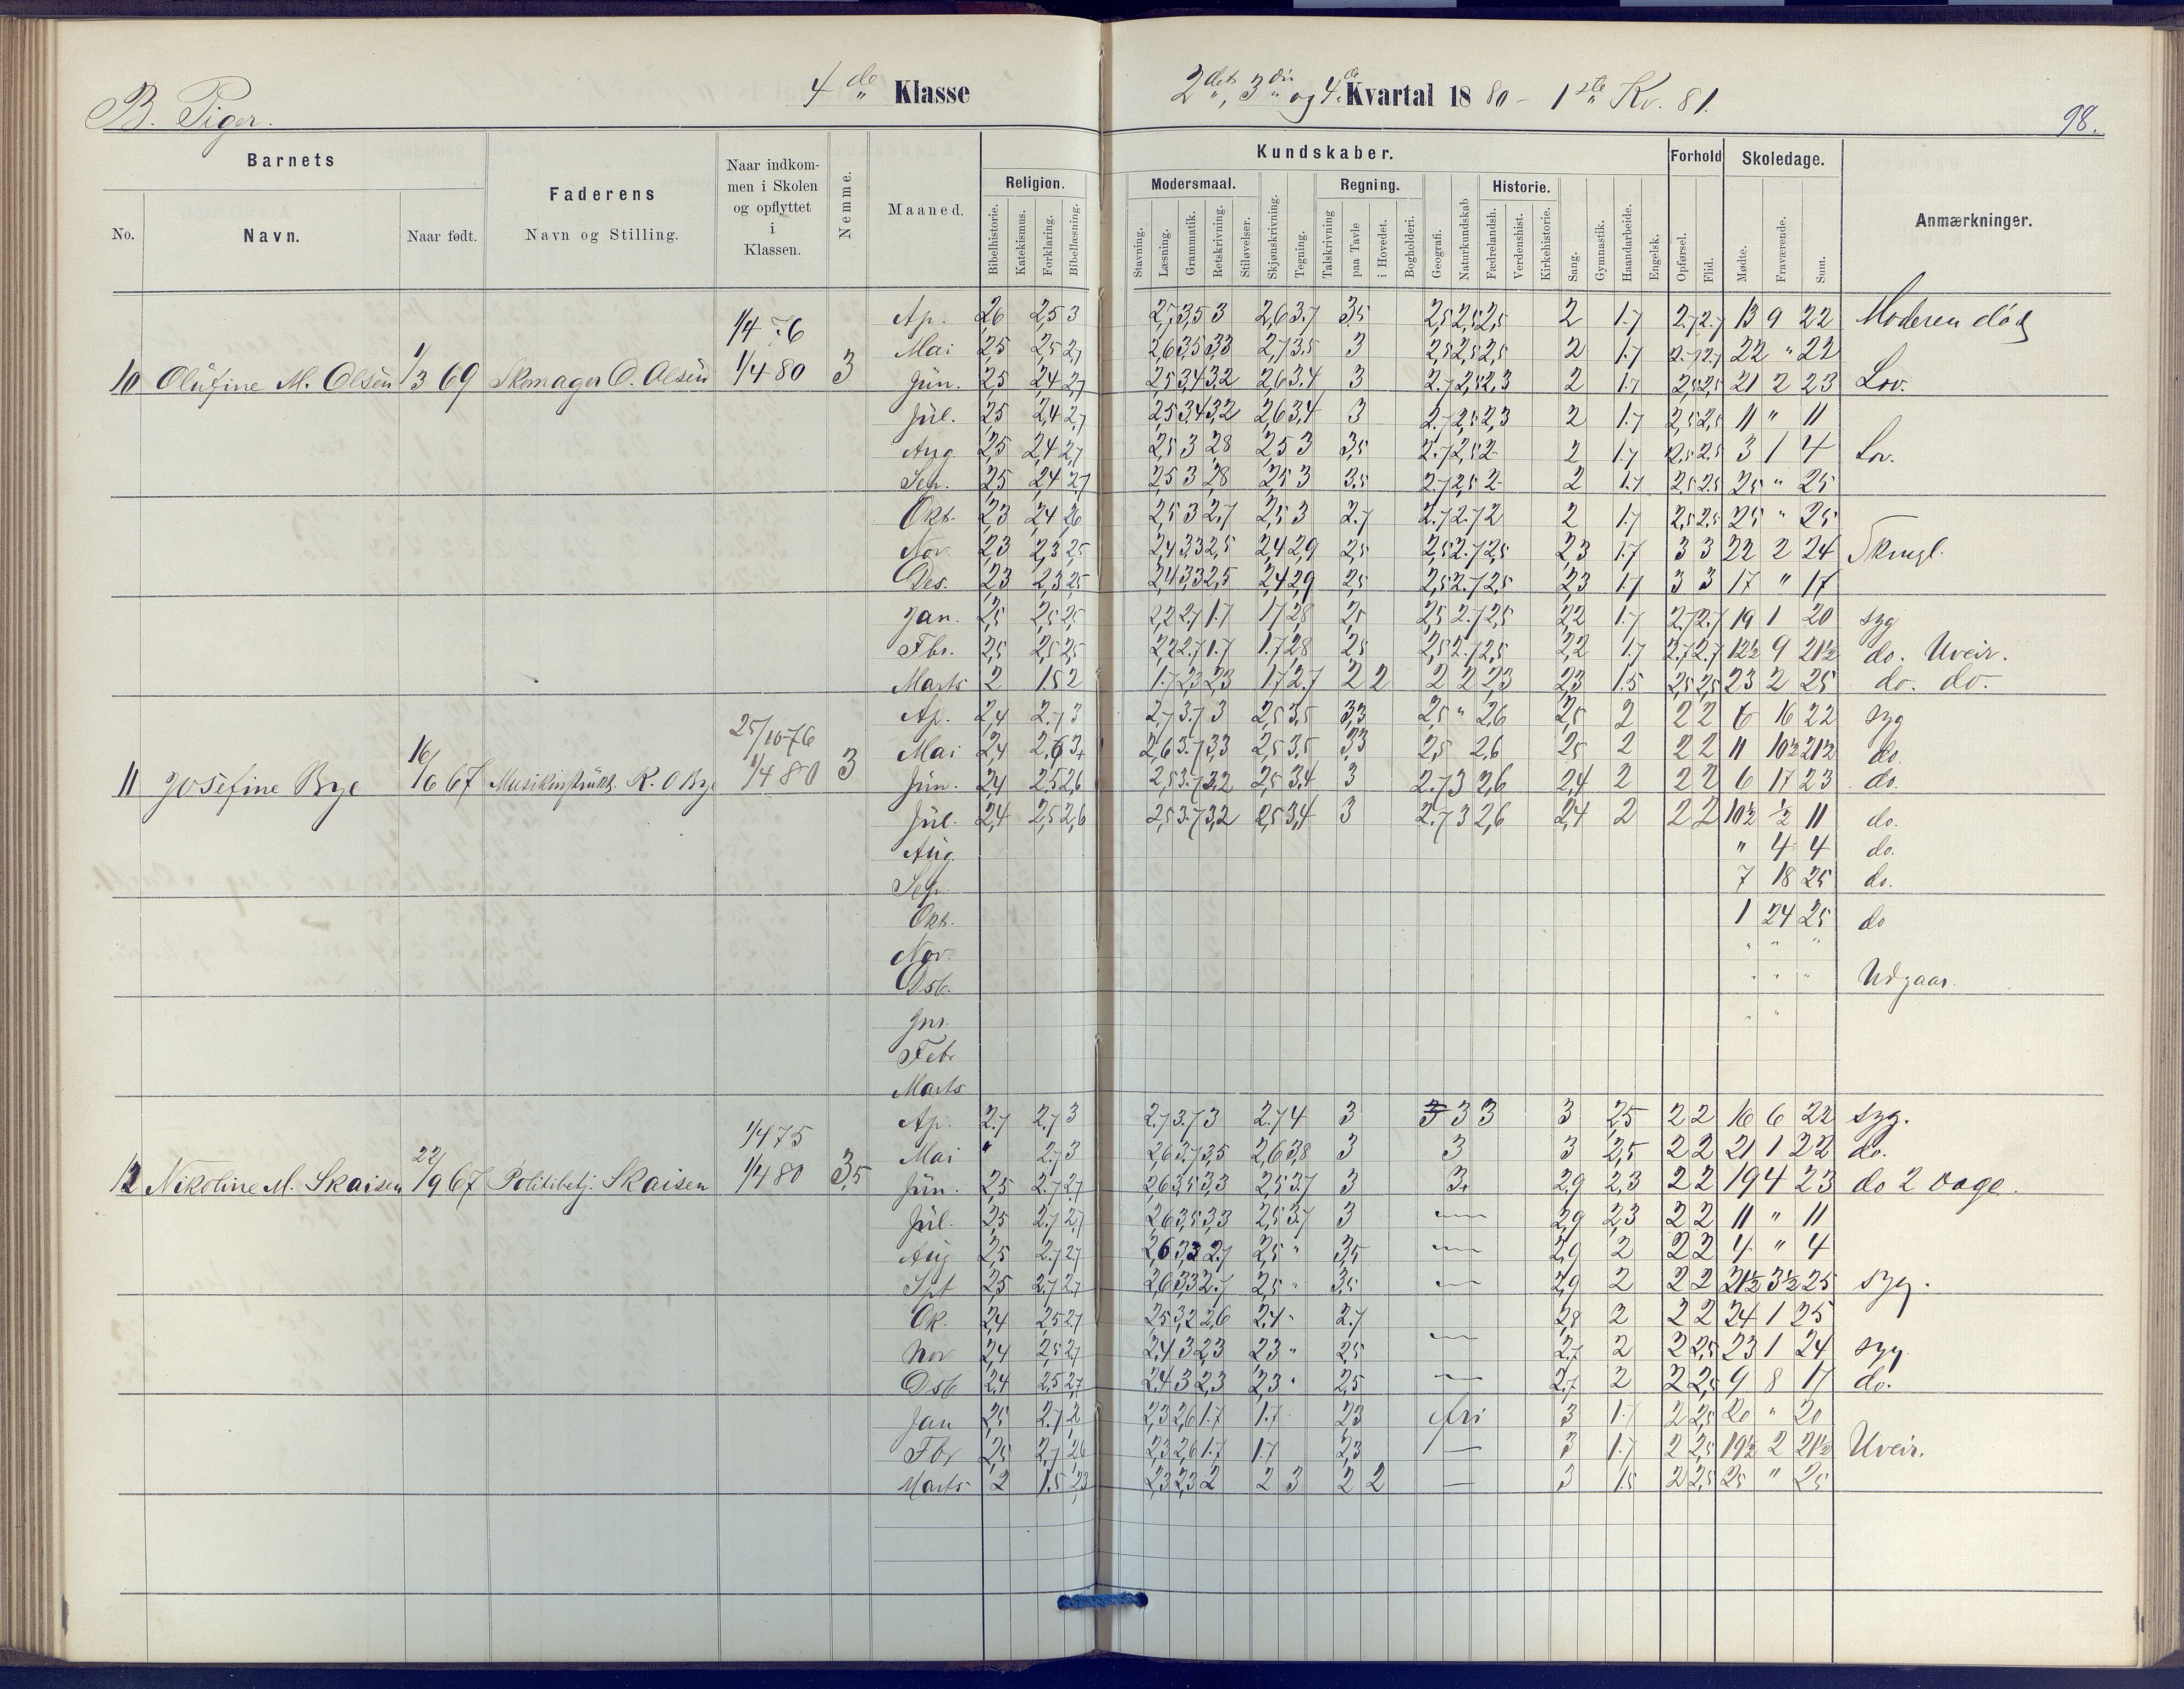 B. Piger.
4de Klasse
2det, 3die og 4de Kvartal 1880 - 1ste Kv. 81.
98.
Barnets
Faderens
Naar indkommen i Skolen og opflyttet i Klassen.
Nemme.
Maaned.
Kundskaber.
Forhold
Skoledage.
Anmærkninger.
No.
Navn.
Naar født.
Navn og Stilling.
Religion.
Modersmaal.
Regning.
Historie.
Bibelhistorie.
Katekismus.
Forklaring.
Bibellæsning.
Stavning.
Læsning.
Grammatik.
Retskrivning.
Stiløvelser.
Skjønskrivning.
Tegning.
Talskrivning
paa Tavle
i Hovedet.
Bogholderi.
Geografi.
Naturkundskab
Fædrelandsh.
Verdenshist.
Kirkehistorie.
Sang.
Gymnastik.
Haandarbeide.
Engelsk.
Opførsel.
Flid.
Mødte.
Fraværende.
Sum.
10 Olufine M. Olsen 1/3 69 Skomager O. Olsen 1/4 76 1/4 80 3
Ap. 2,6 2,5 3 2,7 3,5 3 2,6 3,7 3,5 2,5 2,5 2,5 2 1.7 2.7 2.7 13 9 22 Moderen død
Mai 2,5 2,5 2,7 2,6 3,5 3,3 2,7 3,5 3 2,5 2,5 2,5 2 1.7 2.7 2.7 22 " 22
Jun. 2,5 2,4 2,7 2,5 3,4 3,2 2,6 3,4 3 2.7 2,5 2,3 2 1.7 2,5 2,5 21 2 23 Lov.
Jul. 2,5 2,4 2,7 2,5 3,4 3,2 2,6 3,4 3 2.7 2,5 2,3 2 1.7 2,5 2,5 11 " 11
Aug 2,5 2,4 2,7 2,5 3 2,8 2,5 3 3,5 2.7 2,5 2 2 1.7 2,5 2,5 3 1 4 Lov.
Sep. 2,5 2,4 2,7 2,5 3 2,8 2,5 3 3,5 2.7 2,5 2 2 1.7 2,5 2,5 25 " 25
Okt. 2,3 2,4 2,6 2,5 3 2,7 2,5 3 2.7 2.7 2.7 2 2 1.7 2,5 2,5 25 " 25
Nov. 2,3 2,3 2,5 2,4 3,3 2,5 2,4 2,9 2,5 2,5 2.7 2,5 2,3 1.7 3 3 22 2 24
Des. 2,3 2,3 2,5 2,4 3,3 2,5 2,4 2,9 2,5 2,5 2.7 2,5 2,3 1.7 3 3 17 " 17
Jan. 2,5 2,5 2,5 2,2 2,7 1.7 1,7 2,8 2,5 2,5 2.7 2,5 2,2 1.7 2.7 2.7 19 1 20 syg
Fbr. 2,5 2,5 2,5 2,2 2.7 1.7 1.7 2,8 2,5 2,5 2.7 2,5 2,2 1.7 2.7 2.7 12½ 9 21½ do. Uveir.
Marts 2 1.5 2 1.7 2,3 2,3 1,7 2.7 2 2 2 2 2,3 2,3 1.5 2,5 2,5 23 2 25 do. do.
11 Josefine Bye 16/6 67 Musikinstrukt. R. O Bye 25/10-76 1/4 80 3
Ap. 2,4 2.7 3 2,7 3.7 3 2,5 3,5 3,3 2,5 " 2,6 2,5 2 2 2 6 16 22 syg
Mai 2,4 2,6 3 2,6 3.7 3,3 2,5 3,5 3,3 2,5 2,6 2,5 2 2 2 11 10½ 21½ do.
Jun. 2,4 2,5 2,6 2,5 3.7 3,2 2,5 3,4 3 2.7 3 2,6 2,4 2 2 2 6 17 23 do.
Jul. 2,4 2,5 2,6 2,5 3.7 3,2 2,5 3,4 3 2.7 3 2,6 2,4 2 2 2 10½ ½ 11 do.
Aug. " 4 4 do.
Sep. 7 18 25 do.
Okt. 1 24 25 do
Nov. " " "
Dsb. " " " Udgaar.
Jnr. " "
Febr
Marts
12 Nikoline M. Skaisen 22/9 67 Politibetj. Skaisen 1/4 75 1/4 80 3,5
Ap. 2.7 2.7 3 2.7 3.7 3 2.7 4 3 3 3 3 3 2,5 2 2 16 6 22 syg.
Mai " 2.7 3 2,6 3.7 3,5 2,6 3,8 3 3 3 2,5 2 2 21 1 22 do.
Jun. 2,5 2.7 2,7 2,6 3,5 3,3 2,5 3.7 3 3 2,9 2,3 2 2 19 4 23 do 2 Dage.
Jul. 2,5 2.7 2,7 2,6 3,5 3,3 2,5 3.7 3 — 2,9 2,3 2 2 11 " 11
Aug 2,5 2.7 2,7 2,6 3,3 2.7 2,5 " 3,5 — 2,9 2 2 2 4 " 4
Spt 2,5 2.7 2,7 2,6 3,3 2.7 2,5 " 3,5 — 2,9 2 2 2 21½ 3½ 25 syg.
Ok. 2,4 2,5 2,7 2,5 3,2 2,6 2,4 " 2.7 — 2,8 2 2 2 24 1 25
Nov 2,4 2,5 2,7 2,4 3 2,3 2,3 " 2,5 — 2.7 2 2 2,5 23 1 24 syg.
Dsb 2,4 2,5 2,7 2,4 3 2,3 2,3 " 2,5 — 2.7 2 2 2,5 9 8 17 do.
Jan 2,5 2.7 2 2,3 2,6 1.7 1.7 2,3 fri 3 1.7 2 2,5 20 " 20
Fbr 2,5 2,7 2,6 2,3 2,6 1.7 1.7 2,3 — 3 1.7 2 2,5 19½ 2 21½ Uveir.
Marts 2 1.5 2,3 2,3 2,3 2 2 3 2 2 — 3 1.5 2 2,5 25 " 25